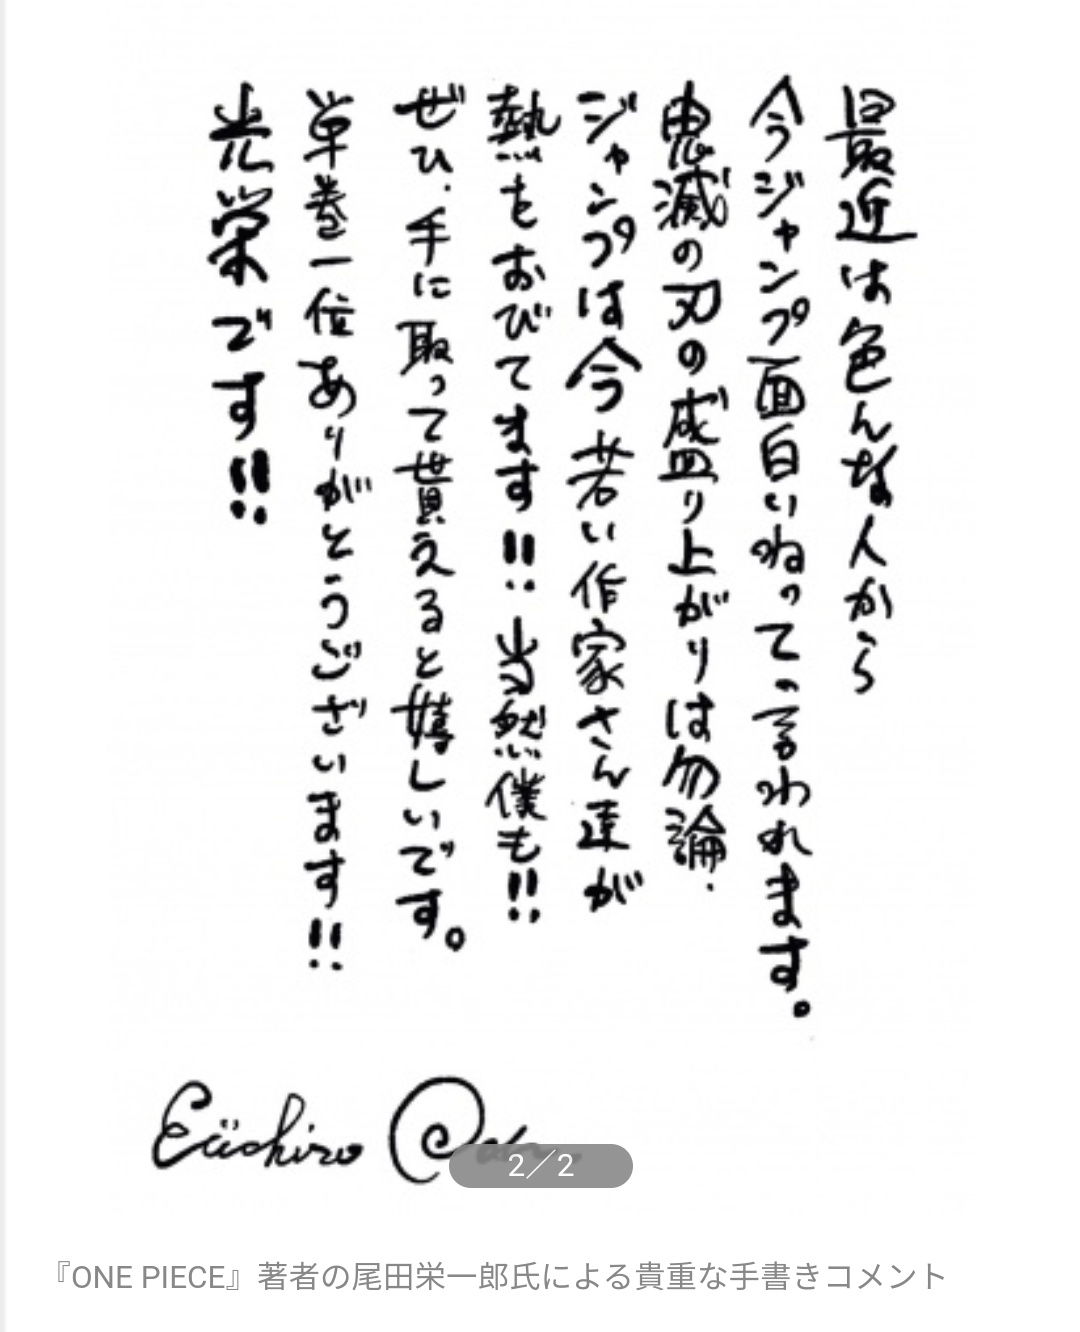 最近は色んな人から
今ジャンプ面白いねって言われます。
鬼滅の刃の盛り上がりは勿論、
ジャンプは今若い作家さん達が
熱をおびてます!!当然僕も!!
ぜひ、手に取って貰えると嬉しいです。
単巻一位ありがとうございます!!
光栄です!!
Eiichiro Oda
2/2
『ONE PIECE』著者の尾田栄一郎氏による貴重な手書きコメント